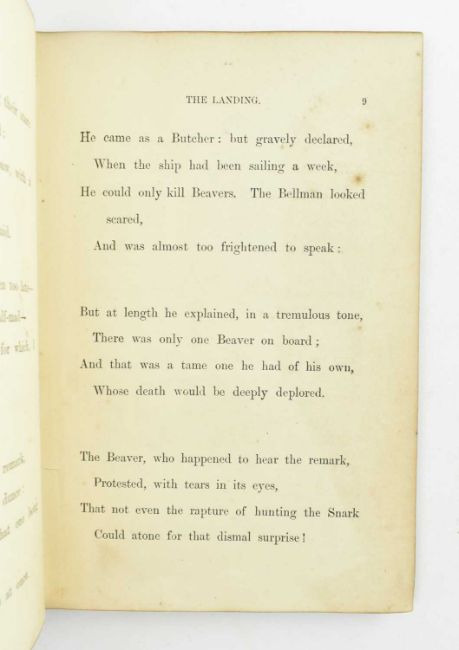 THE LANDING. 9
He came as a Butcher: but gravely declared,
When the ship had been sailing a week,
He could only kill Beavers. The Bellman looked
scared,
And was almost too frightened to speak:
But at length he explained, in a tremulous tone,
There was only one Beaver on board;
And that was a tame one he had of his own,
Whose death would be deeply deplored.
The Beaver, who happened to hear the remark,
Protested, with tears in its eyes,
That not even the rapture of hunting the Snark
Could atone for that dismal surprise!